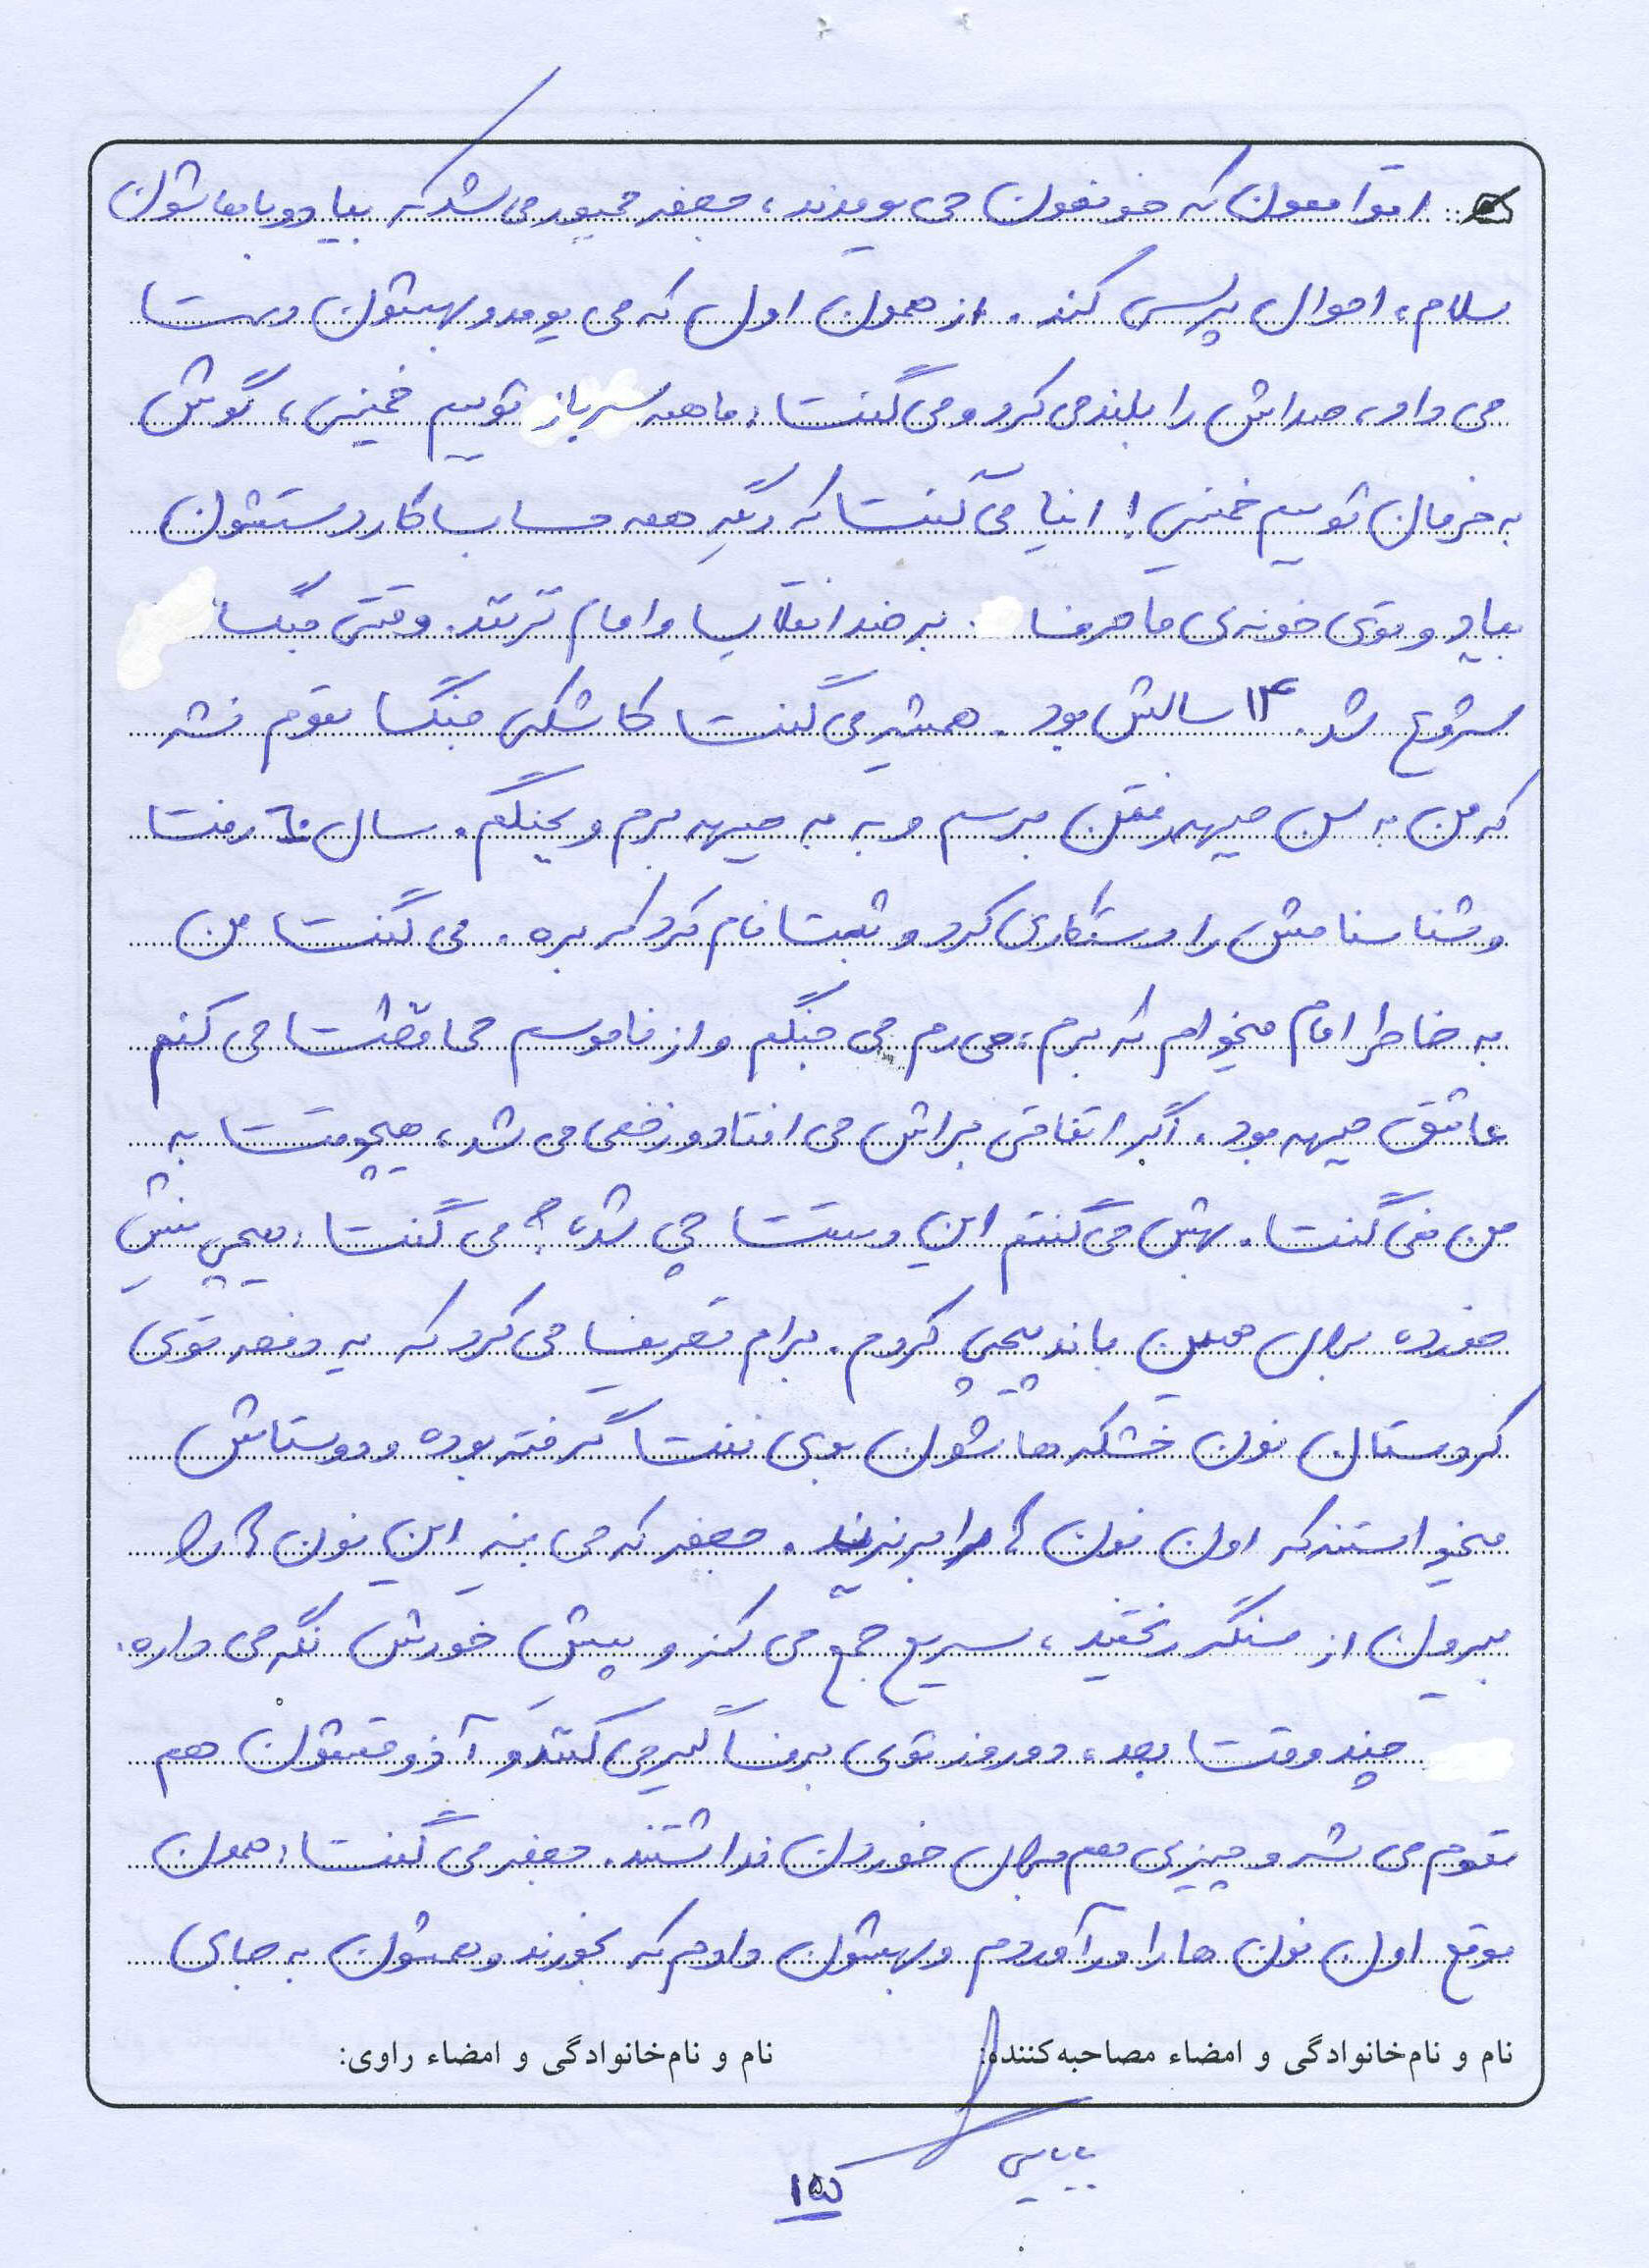 اقوامون که خونمون می یومدند، جعفر مجبور می شد که بیاد و باهاشون
سلام، احوال پرسی کند. از همون اول که می یومد و بهشون دست
می داد، صداش را بلند می کرد و می گفت: ما همه سرباز توییم خمینی، گوش
به فرمان توییم خمینی! اینا می گفت که دیگه همه حساب کار دستشون
بیاد و توی خونه ی ما حرف به ضد انقلاب و امام نزنند. وقتی جنگ
شروع شد. ۱۴ سالش بود. همیشه می گفت کاشکی جنگ تموم نشه
که من به سن جبهه رفتن برسم و به جبهه برم و بجنگم. سال ۶۰ رفت
و شناسنامش را دستکاری کرد و ثبت نام کرد که بره. می گفت من
به خاطر امام میخوام که برم، می رم می جنگم و از ناموسم محافظت می کنم
عاشق جبهه بود. اگر اتفاقی براش می افتاد و زخمی می شد، هیچوقت به
من نمی گفت. بهش می گفتم این دستت چی شده؟ می گفت: هیچی نیش
خورده برای همین باند پیچی کردم. برام تعریف می کرد که یه دفعه توی
کردستان نون خشک هاشون بوی نفت گرفته بوده و دوستاش
میخواستند که اون نون ها را بریزند. جعفر که می بینه این نون ها را
بیرون از سنگر ریختند، سریع جمع می کنه و پیش خودش نگه می داره.
چند وقت بعد، دو روز توی برف گیر می کنند و آذوقشون هم
تموم می شه و چیزی هم برای خوردن نداشتند. جعفر می گفت: همون
موقع اون نون ها را در آوردم و بهشون دادم که بخورند و همشون به جای
نام و نام‌خانوادگی و امضاء مصاحبه‌کننده: نام و نام‌خانوادگی و امضاء راوی:
بابایی
۱۵